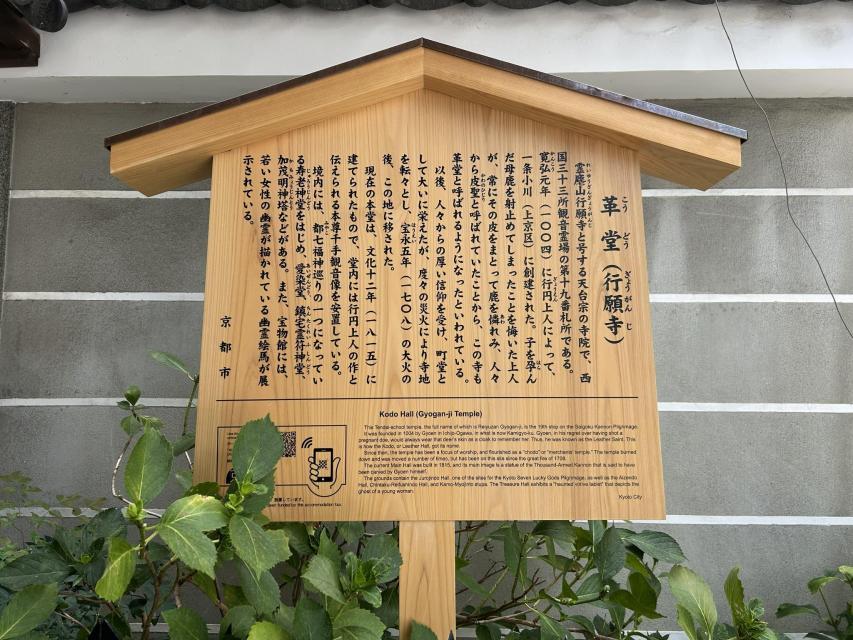 革堂（行願寺）
霊麀山行願寺と号する天台宗の寺院で、西
国三十三所観音霊場の第十九番札所である。
寛弘元年（一〇〇四）に行円上人によって、
一条小川（上京区）に創建された。子を孕ん
だ母鹿を射止めてしまったことを悔いた上人
が、常にその皮をまとって鹿を憐れみ、人々
から皮聖と呼ばれていたことから、この寺も
革堂と呼ばれるようになったといわれている。
以後、人々からの厚い信仰を受け、町堂と
して大いに栄えたが、度々の災火により寺地
を転々とし、宝永五年（一七〇八）の大火の
後、この地に移された。
現在の本堂は、文化十二年（一八一五）に
建てられたもので、堂内には行円上人の作と
伝えられる本尊千手観音像を安置している。
境内には、都七福神巡りの一つになってい
る寿老神堂をはじめ、愛染堂、鎮宅霊符神堂、
加茂明神塔などがある。また、宝物館には、
若い女性の幽霊が描かれている幽霊絵馬が展
示されている。
京都市
Kodo Hall (Gyogan-ji Temple)
This Tendai-school temple, the full name of which is Reiyuzan Gyogan-ji, is the 19th stop on the Saigoku Kannon Pilgrimage.
It was founded in 1004 by Gyoen in Ichijo-Ogawa, in what is now Kamigyo-ku. Gyoen, in his regret over having shot a
pregnant doe, would always wear that deer's skin as a cloak to remember her. Thus, he was known as the Leather Saint. This
is how the Kodo, or Leather Hall, got its name.
Since then, the temple has been a focus of worship, and flourished as a "chodo" or "merchants' temple." The temple burned
down and was moved a number of times, but has been on this site since the great fire of 1708.
The current Main Hall was built in 1815, and its main image is a statue of the Thousand-Armed Kannon that is said to have
been carved by Gyoen himself.
The grounds contain the Jurojindo Hall, one of the sites for the Kyoto Seven Lucky Gods Pilgrimage, as well as the Aizendo
Hall, Chintaku-Reifujindo Hall, and Kamo-Myojinto stupa. The Treasure Hall exhibits a "haunted votive tablet" that depicts the
ghost of a young woman.
Kyoto City
been funded by the accommodation tax.